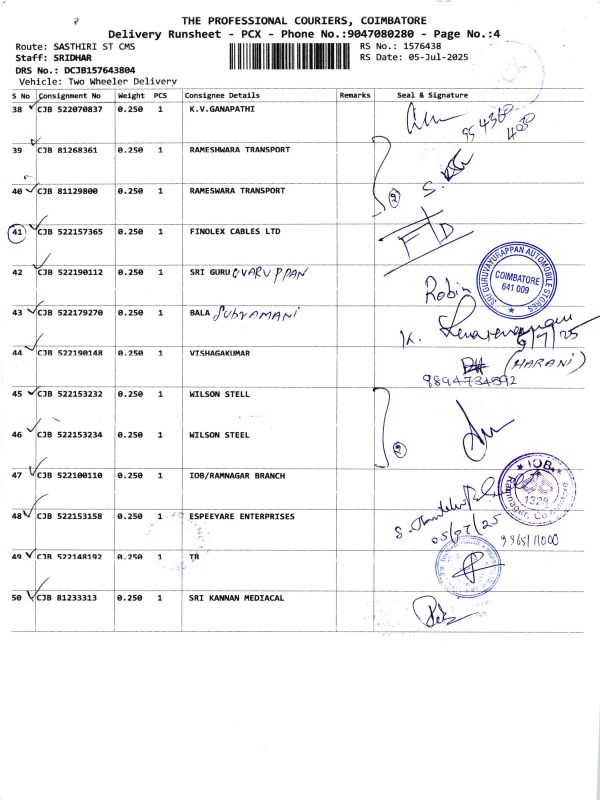 THE PROFESSIONAL COURIERS, COIMBATORE
Delivery Runsheet - PCX - Phone No.:9047080280 - Page No.:4
Route: SASTHIRI ST CMS
RS No.: 1576438
Staff: SRIDHAR
RS Date: 05-Jul-2025
DRS No.: DCJB157643804
Vehicle: Two Wheeler Delivery
S No Consignment No Weight PCS Consignee Details Remarks Seal & Signature
38 CJB 522070837 0.250 1 K.V.GANAPATHI
39 CJB 81268361 0.250 1 RAMESHWARA TRANSPORT
40 CJB 81129800 0.250 1 RAMESWARA TRANSPORT
41 CJB 522157365 0.250 1 FINOLEX CABLES LTD F D
42 CJB 522190112 0.250 1 SRI GURU GVARUPPAN
Robin
SRI GURUVAYURAPPAN AUTOMOBILE STORES
COIMBATORE
641 009
43 CJB 522179270 0.250 1 BALA SUBYAMANI
K.
/7/25
44 CJB 522190148 0.250 1 VISHAGAKUMAR
(MARANI)
9894734592
45 CJB 522153232 0.250 1 WILSON STELL
46 CJB 522153234 0.250 1 WILSON STEEL
47 CJB 522100110 0.250 1 IOB/RAMNAGAR BRANCH
IOB
1328
Ramnagar, Coimbatore
48 CJB 522153158 0.250 1 ESPEEYARE ENTERPRISES
05/07/25
49 CJB 522148192 0.250 1 TB
50 CJB 81233313 0.250 1 SRI KANNAN MEDIACAL